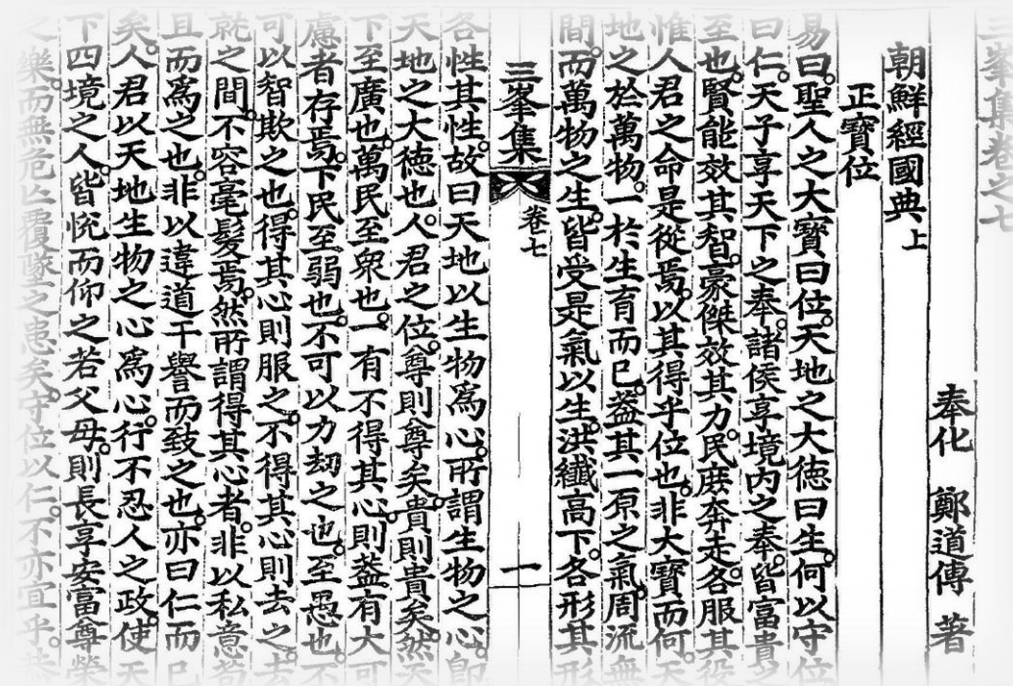 三峯集卷之七
奉化 鄭道傳 著
朝鮮經國典上
正寶位
易曰。聖人之大寶曰位。天地之大德曰生。何以守位
曰仁。天子享天下之奉。諸侯享境內之奉。皆富貴之
至也。賢能效其智。豪傑效其力。民庶奔走。各服其役
惟人君之命是從焉。以其得乎位也。非大寶而何。天
地之於萬物。一於生育而已。盖其一原之氣。周流無
間。而萬物之生。皆受是氣以生。洪纖高下。各形其形
三峯集 卷七 一
各性其性。故曰天地以生物爲心。所謂生物之心。卽
天地之大德也。人君之位。尊則尊矣。貴則貴矣。然
下至廣也。萬民至衆也。一有不得其心。則盖有大可
慮者存焉。下民至弱也。不可以力劫之也。至愚也。不
可以智欺之也。得其心則服之。不得其心則去之。去
就之間。不容毫髮焉。然所謂得其心者。非以私意苟
且而爲之也。非以違道干譽而致之也。亦曰仁而已
矣。人君以天地生物之心爲心。行不忍人之政。使天
下四境之人。皆悅而仰之若父母。則長享安富尊榮
之樂。而無危亡覆墜之患矣。守位以仁。不亦宜乎。恭